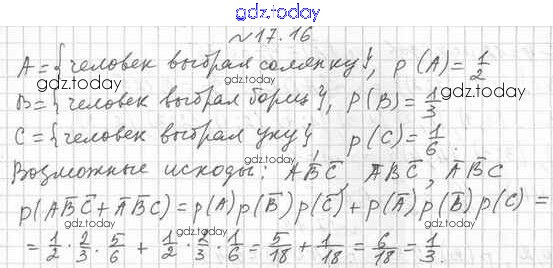 gdz.today
№17.16
A = {человек выбрал солянку}, p(A) = 1/2
gdz.today gdz.today
B = {человек выбрал борщ}, p(B) = 1/3
C = {человек выбрал уху}, p(C) = 1/6.
gdz.today
Возможные исходы: A B̅ C̅ A̅ B C̅, A̅ B̅ C
p(A B̅ C̅ + A̅ B̅ C) = p(A) p(B̅) p(C̅) + p(A̅) p(B̅) p(C) =
gdz.today
= 1/2 · 2/3 · 5/6 + 1/2 · 2/3 · 1/6 = 5/18 + 1/18 = 6/18 = 1/3.
gdz.today gdz.today